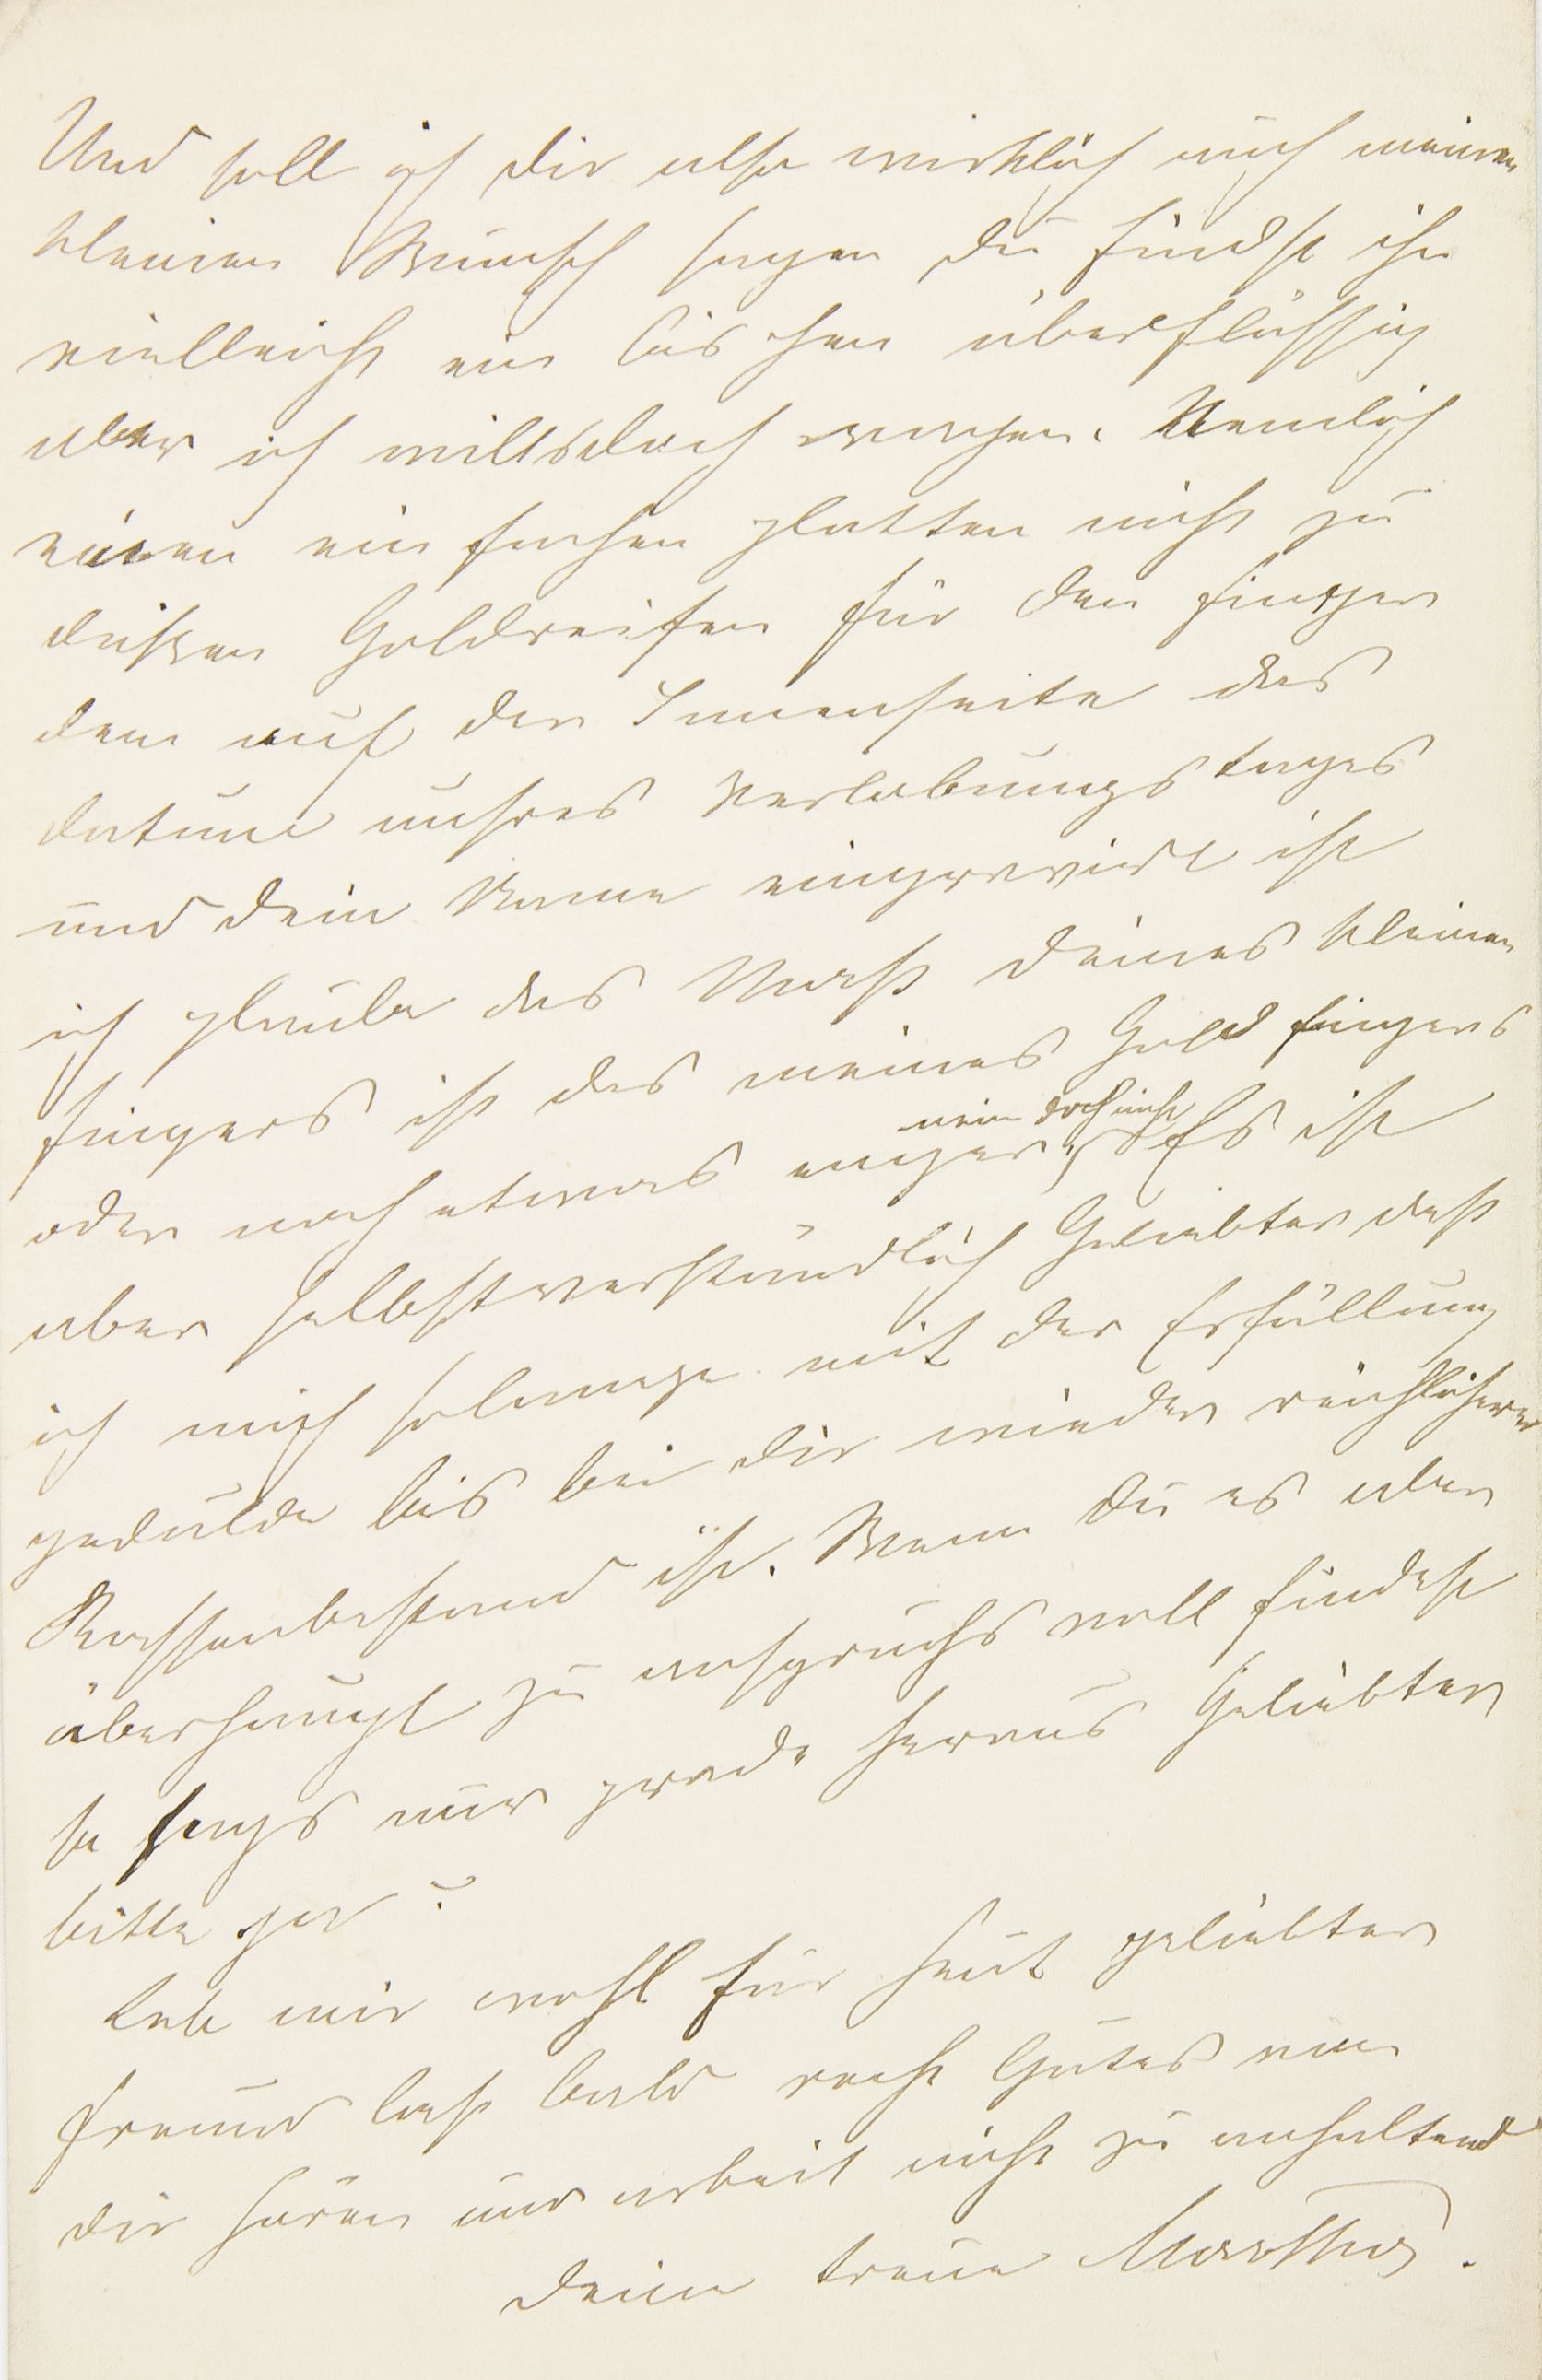 Und soll ich dir also wirklich auch meinen
kleinen Wunsch sagen du findst ihn
vielleicht ein bis chen überflüssig
aber ich wills doch wagen. Nemlich
einen ein fachen glatten nicht zu
dicken Goldreifen für den Finger
dem auf der Innenseite das
Datum unsres Verlobungstages
und dein Name eingravirt ist
ich glaube das Maß deines kleinen
Fingers ist das meines Gold fingers
nein doch nicht
oder noch etwas enger, Es ist
aber selbstverständlich Geliebter daß
ich mich solange mit der Erfüllung
gedulde bis bei dir wieder reichlicherer
Kassenbestand ist. Wenn du es aber
überhaupt zu anspruchs voll findest
so sags nur grade heraus Geliebter
bitte ja?
Leb mir wohl für heut geliebter
Freund laß bald recht Gutes von
dir hören und arbeit nicht zu anhaltend
deine treue Martha.